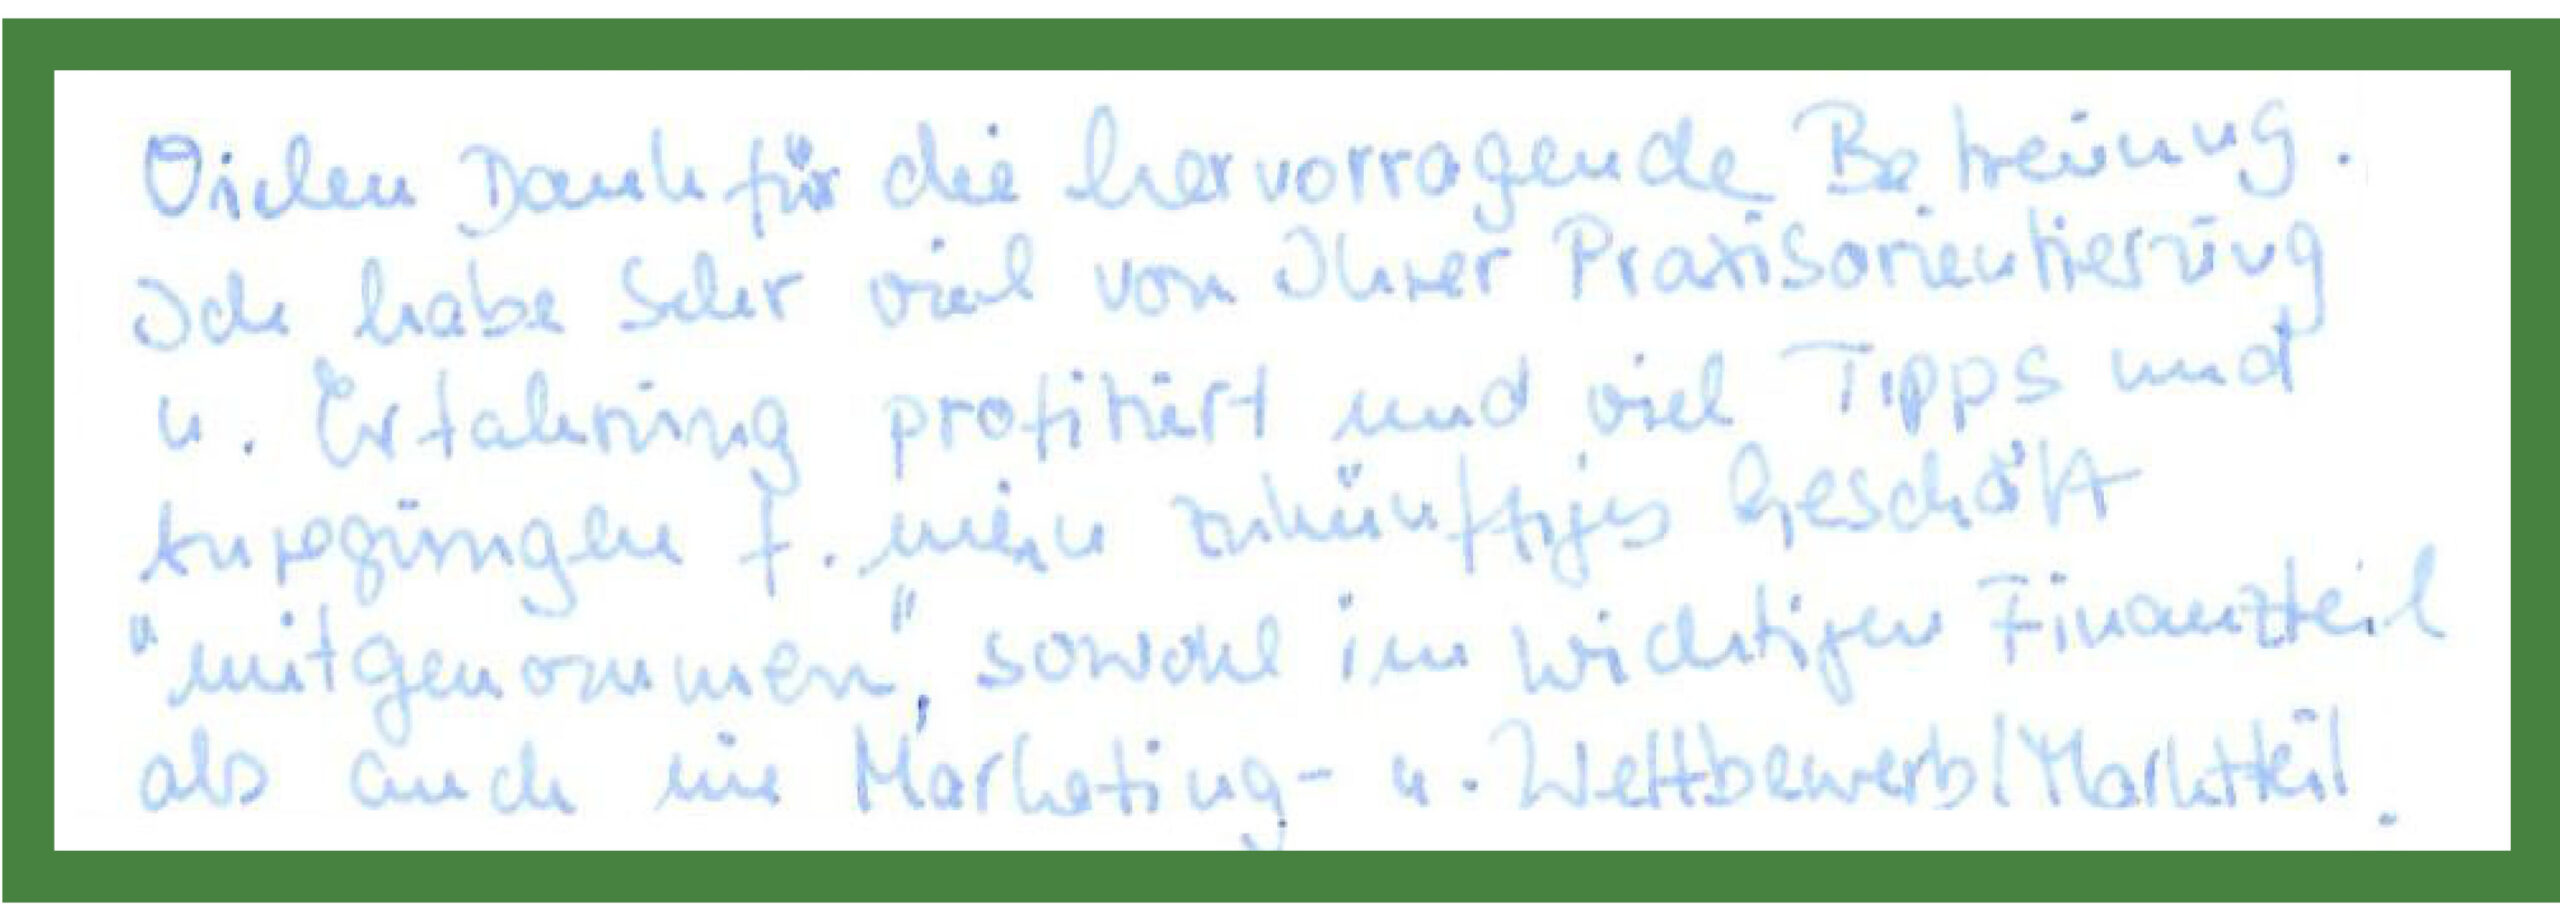 Vielen Dank für die hervorragende Betreuung.
Ich habe sehr viel von Ihrer Praxisorientierung
u. Erfahrung profitiert und viel Tipps und
Anregungen f. mein zukünftiges Geschäft
"mitgenommen", sowohl im wichtigen Finanzteil
als auch im Marketing- u. Wettbewerb/Marktteil.